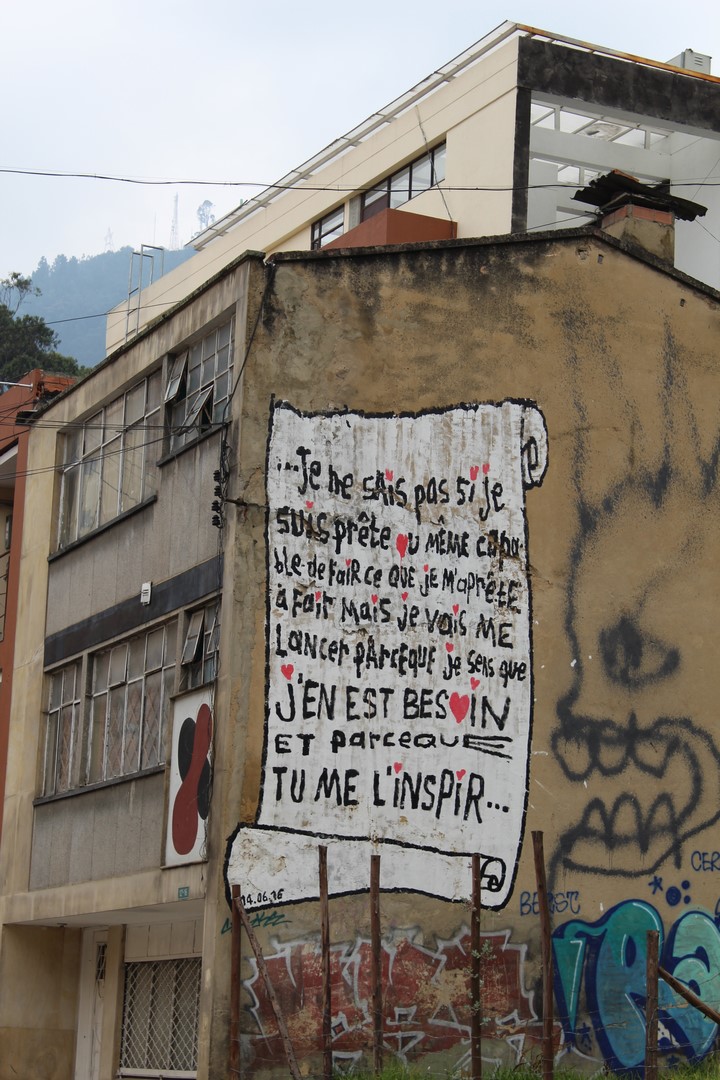 ...Je ne sais pas si je
suis prête ou MÊME capa-
ble de faiR ce QUE je M'aPRêtE
à Fair Mais Je vais ME
LANcer PARcEQUE je sens que
J'EN EST BESOIN
ET parceque
TU ME L'iNSPiR...
14.06.16